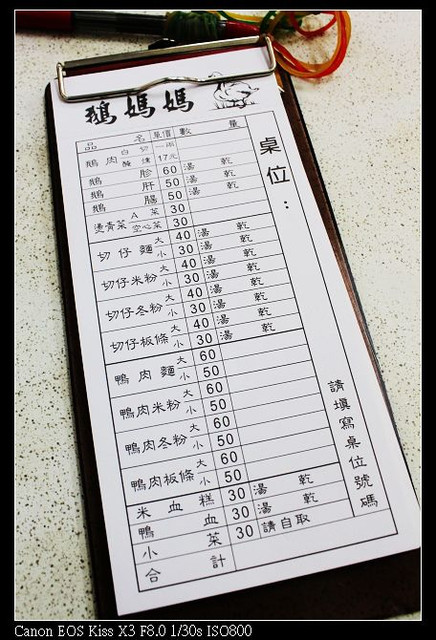 鵝媽媽
品名 單價 數量
鵝肉 白切 醃燻 一兩 17元
鵝胗 60 湯 乾
鵝肝 50 湯 乾
鵝腸 50 湯 乾
燙青菜 A菜 空心菜 30 30
切仔麵 大 40 湯 乾
小 30 湯 乾
切仔米粉 大 40 湯 乾
小 30 湯 乾
切仔冬粉 大 40 湯 乾
小 30 湯 乾
切仔板條 大 40 湯 乾
小 30 湯 乾
鴨肉麵 大 60
小 50
鴨肉米粉 大 60
小 50
鴨肉冬粉 大 60
小 50
鴨肉板條 大 60
小 50
米血糕 30 湯 乾
鴨血 30 湯 乾
小菜 30 請自取
合計
桌位：
請填寫桌位號碼
Canon EOS Kiss X3 F8.0 1/30s ISO800